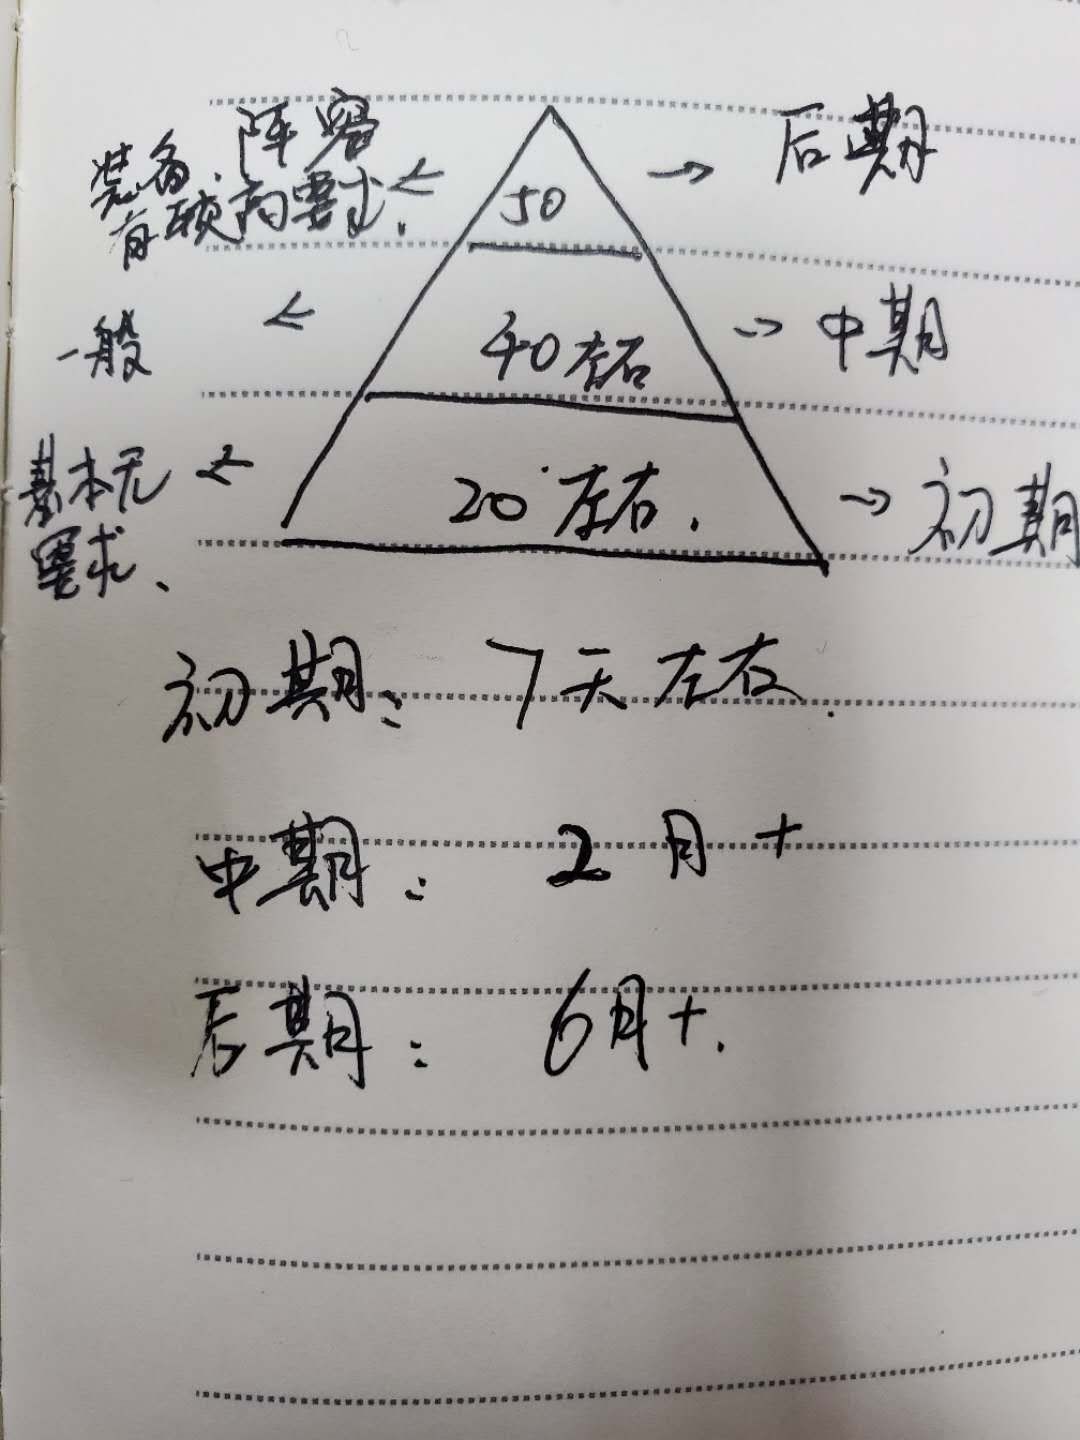 装备、阵容
有较高要求.
← 50 → 后期
一般 ← 40左右 → 中期
基本无
要求、
← 20左右. → 初期
初期: 7天左右.
中期: 2月+
后期: 6月+.